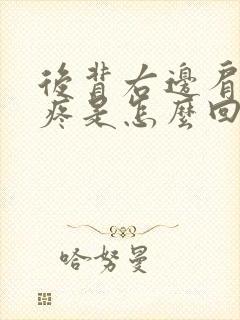 後背右邊肩
疼是怎麼回
哈努曼